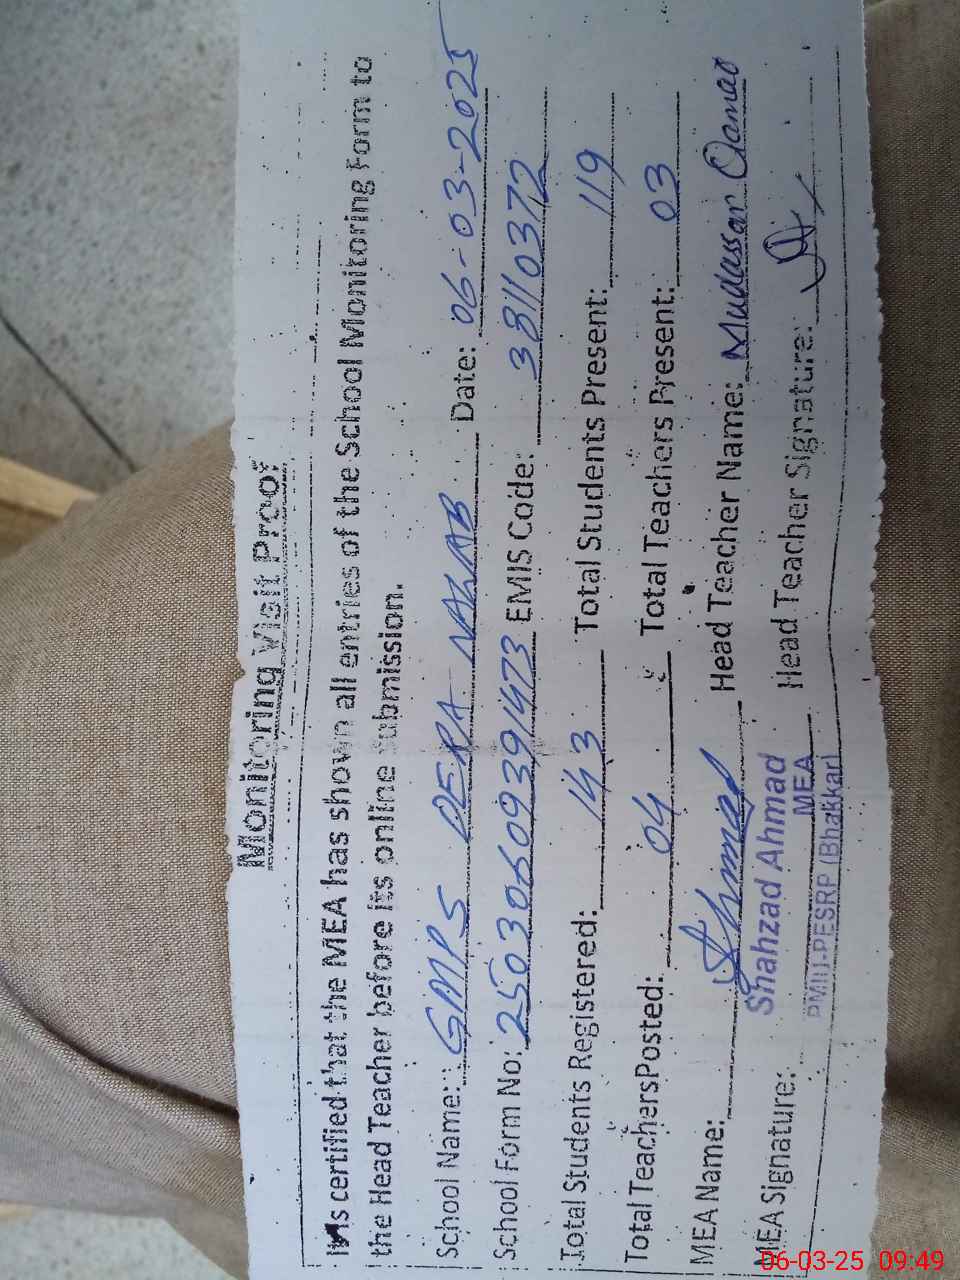 Monitoring Visit Proof
It is certified that the MEA has shown all entries of the School Monitoring Form to
the Head Teacher before its online submission.
School Name: GMPS DERA NAZAB Date: 06-03-2025
School Form No: 25030609391473 EMIS Code: 38110372
Total Students Registered: 143 Total Students Present: 119
Total TeachersPosted: 04 Total Teachers Present: 03
MEA Name: Ahmad Head Teacher Name: Mudassar Qamar
MEA Signature: Head Teacher Signature:
Shahzad Ahmad
MEA
PMIU-PESRP (Bhakkar)
06-03-25 09:49